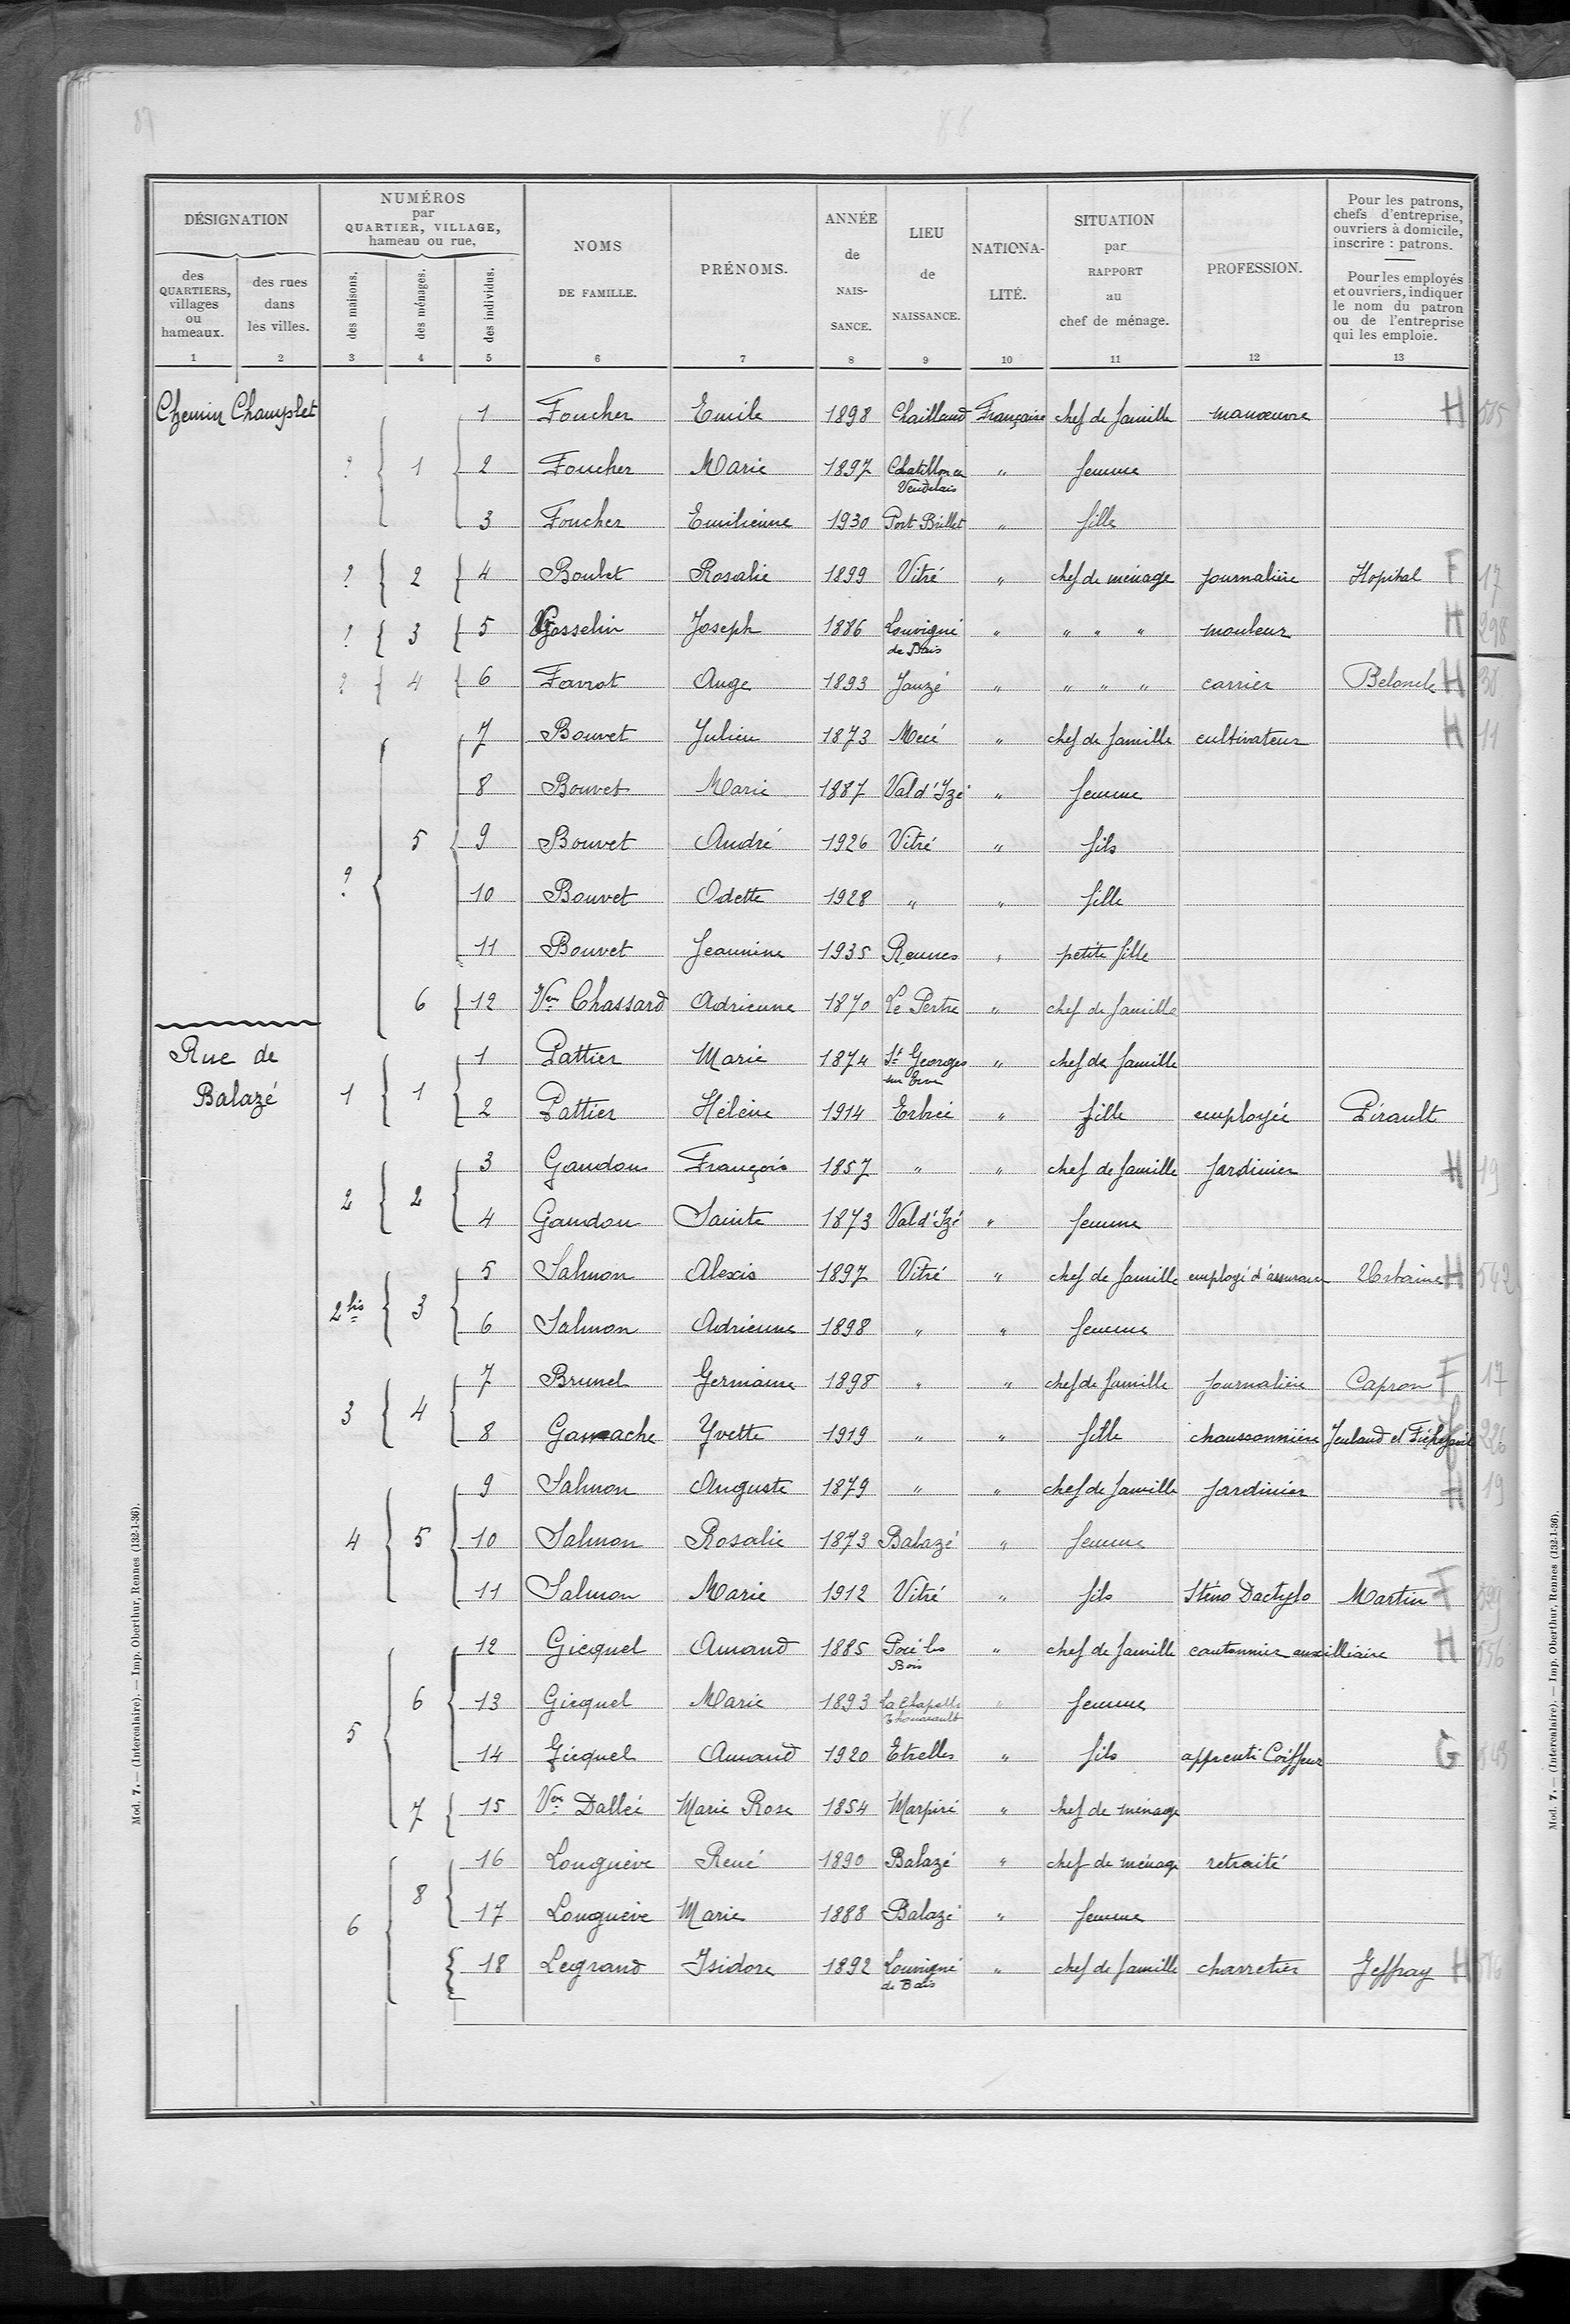 DÉSIGNATION
des QUARTIERS, villages ou hameaux.
des rues dans les villes.
NUMÉROS par QUARTIER, VILLAGE, hameau ou rue.
des maisons.
des ménages.
des individus.
NOMS DE FAMILLE.
PRÉNOMS.
ANNÉE de NAIS-SANCE.
LIEU de NAISSANCE.
NATIONA-LITÉ.
SITUATION par RAPPORT au chef de ménage.
PROFESSION.
Pour les patrons, chefs d'entreprise, ouvriers à domicile, inscrire : patrons.
Pour les employés et ouvriers, indiquer le nom du patron ou de l'entreprise qui les emploie.
1 2 3 4 5 6 7 8 9 10 11 12 13
Chemin Champlet
1 Foucher Emile 1898 Chailland Française chef de famille manœuvre H
? 1 2 Foucher Marie 1897 Chatillon en Vendelais " femme
3 Foucher Emilienne 1930 Port Brillet " fille
? 2 4 Boulet Rosalie 1899 Vitré " chef de ménage journalière Hopital F 17
? 3 5 Gosselin Joseph 1886 Louvigné de Bais " " " " mouleur H 298
? 4 6 Farrot Ange 1893 Janzé " " " " carrier H 38
7 Bouvet Julien 1873 Mecé " chef de famille cultivateur H 11
8 Bouvet Marie 1887 Val d'Izé " femme
? 5 9 Bouvet André 1926 Vitré " fils
10 Bouvet Odette 1928 " " fille
11 Bouvet Jeannine 1935 Rennes " petite fille
6 12 Vve Chassard Adrienne 1870 Le Pertre " chef de famille
Rue de Balazé
1 1 1 Pattier Marie 1874 St Georges sur Erve " chef de famille
2 Pattier Hélène 1914 Erbrée " fille employée Pirault
2 2 3 Gaudon François 1857 " " chef de famille jardinier H 19
4 Gaudon Sainte 1873 Val d'Izé " femme
2 bis 3 5 Salmon Alexis 1897 Vitré " chef de famille employé d'assurance Urbaine H 542
6 Salmon Adrienne 1898 " " femme
3 4 7 Brunel Germaine 1898 " " chef de famille journalière Capron F 17
8 Gamache Yvette 1919 " " fille chaussonnière Jeuland et 226
4 5 9 Salmon Auguste 1879 " " chef de famille jardinier H 19
10 Salmon Rosalie 1873 Balazé " femme
11 Salmon Marie 1912 Vitré " fils Sténo Dactylo Martin F
5 6 12 Gicquel Amand 1885 Pocé les Bois " chef de famille cantonnier auxilliaire H 556
13 Gicquel Marie 1893 La Chapelle Thouarault " femme
14 Gicquel Amand 1920 Etrelles " fils apprenti Coiffeur G
7 15 Vve Dallée Marie Rose 1854 Marpiré " chef de ménage
6 8 16 Longuève René 1890 Balazé " chef de ménage retraité
17 Longuève Marie 1888 Balazé " femme
18 Legrand Isidore 1892 Louvigné de Bais " chef de famille charretier Jeffray H 516
Mod. 7. — (Intercalaire). — Imp. Oberthur, Rennes (132-1-36).
Mod. 7. — (Intercalaire). — Imp. Oberthur, Rennes (132-1-36).